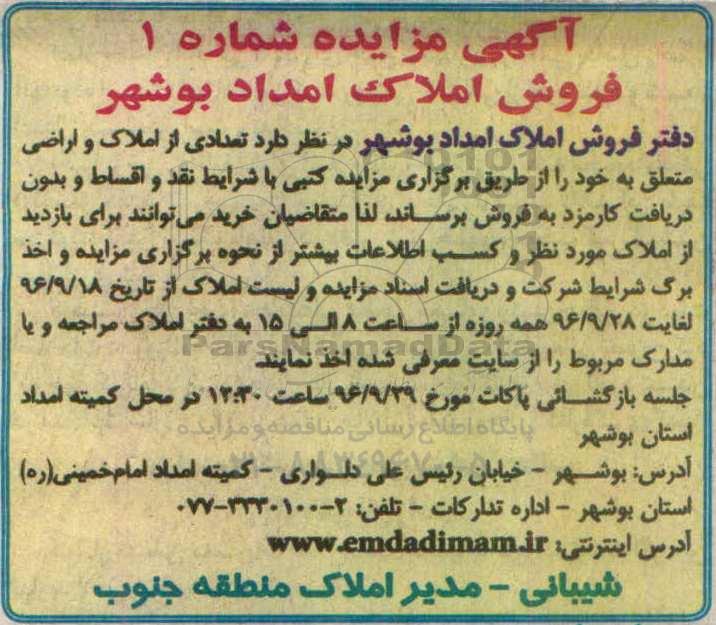 آگهی مزایده شماره ۱
فروش املاک امداد بوشهر
دفتر فروش املاک امداد بوشهر در نظر دارد تعدادی از املاک و اراضی
متعلق به خود را از طریق برگزاری مزایده کتبی با شرایط نقد و اقساط و بدون
دریافت کارمزد به فروش برساند، لذا متقاضیان خرید می‌توانند برای بازدید
از املاک مورد نظر و کسب اطلاعات بیشتر از نحوه برگزاری مزایده و اخذ
برگ شرایط شرکت و دریافت اسناد مزایده و لیست املاک از تاریخ ۹۶/۹/۱۸
لغایت ۹۶/۹/۲۸ همه روزه از ساعت ۸ الی ۱۵ به دفتر املاک مراجعه و یا
ParsNamadData
مدارک مربوط را از سایت معرفی شده اخذ نمایند.
جلسه بازگشائی پاکات مورخ ۹۶/۹/۲۹ ساعت ۱۲:۳۰ در محل کمیته امداد
پایگاه اطلاع رسانی مناقصه و مزایده
استان بوشهر
آدرس: بوشهر - خیابان رئیس علی دلواری - کمیته امداد امام‌خمینی(ره)
استان بوشهر - اداره تدارکات - تلفن: ۲-۳۳۳۰۱۰۰-۰۷۷
آدرس اینترنتی: www.emdadimam.ir
شیبانی - مدیر املاک منطقه جنوب